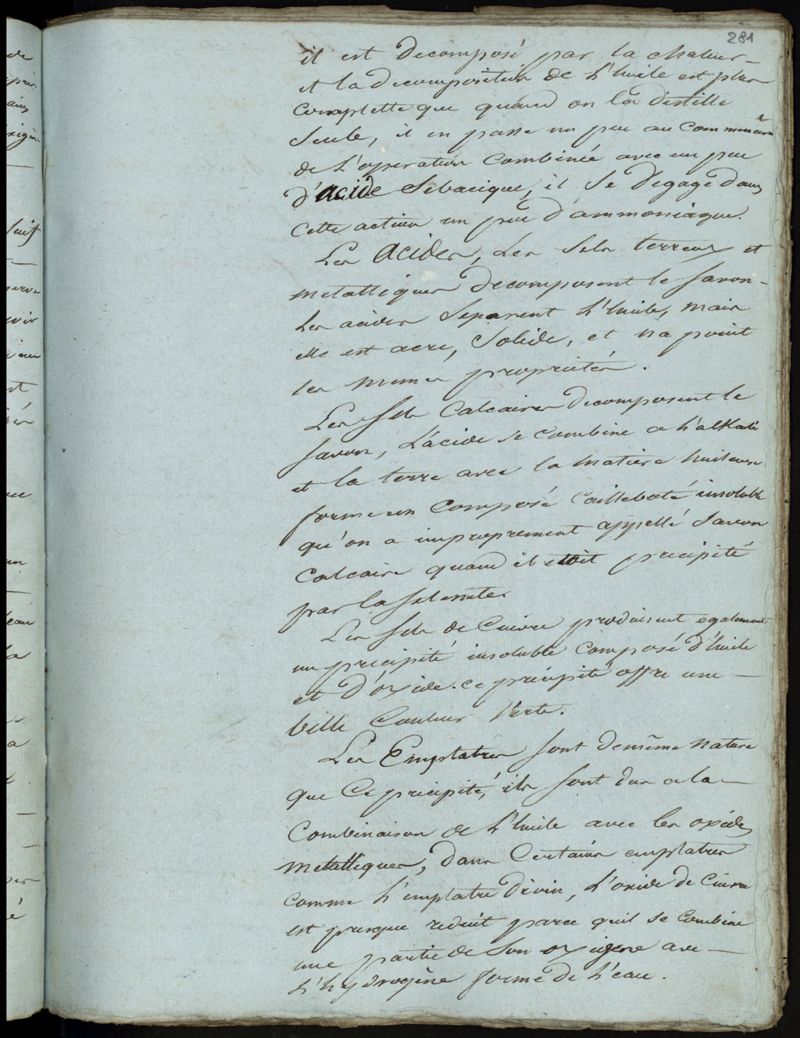 281
il est decomposé par la chaleur
et la decomposition de l'huile est plus
complette que quand on la distille
seule, il en passe un peu au commencem
de l'operation combinée avec un peu
d'acide sebacique, il se degage dans
cette action un peu d'ammoniaque.
Les acides, les sels terreux et
metalliques decomposent le savon
les acides separent l'huile, mais
elle est acre, solide, et n'a point
les memes proprietés.
Les sels calcaires decomposent le
savon, l'acide se combine a l'alkali
et la terre avec la matiere huileuse
forme un composé caillebotté insoluble
qu'on a improprement appellé savon
calcaire quand il etoit precipité
par la selenite
Les sels de cuivre produisent egalement
un precipité insoluble composé d'huile
et d'oxide. ce precipité offre une
belle couleur verte.
Les Emplatres sont de même nature
que ce precipité, ils sont dus a la
combinaison de l'huile avec les oxides
metalliques, dans certains emplatres
comme l'emplatre divin, l'oxide de cuivre
est presque reduit parce qu'il se combine
une partie de son oxigene avec
l'hydrogène forme de l'eau.